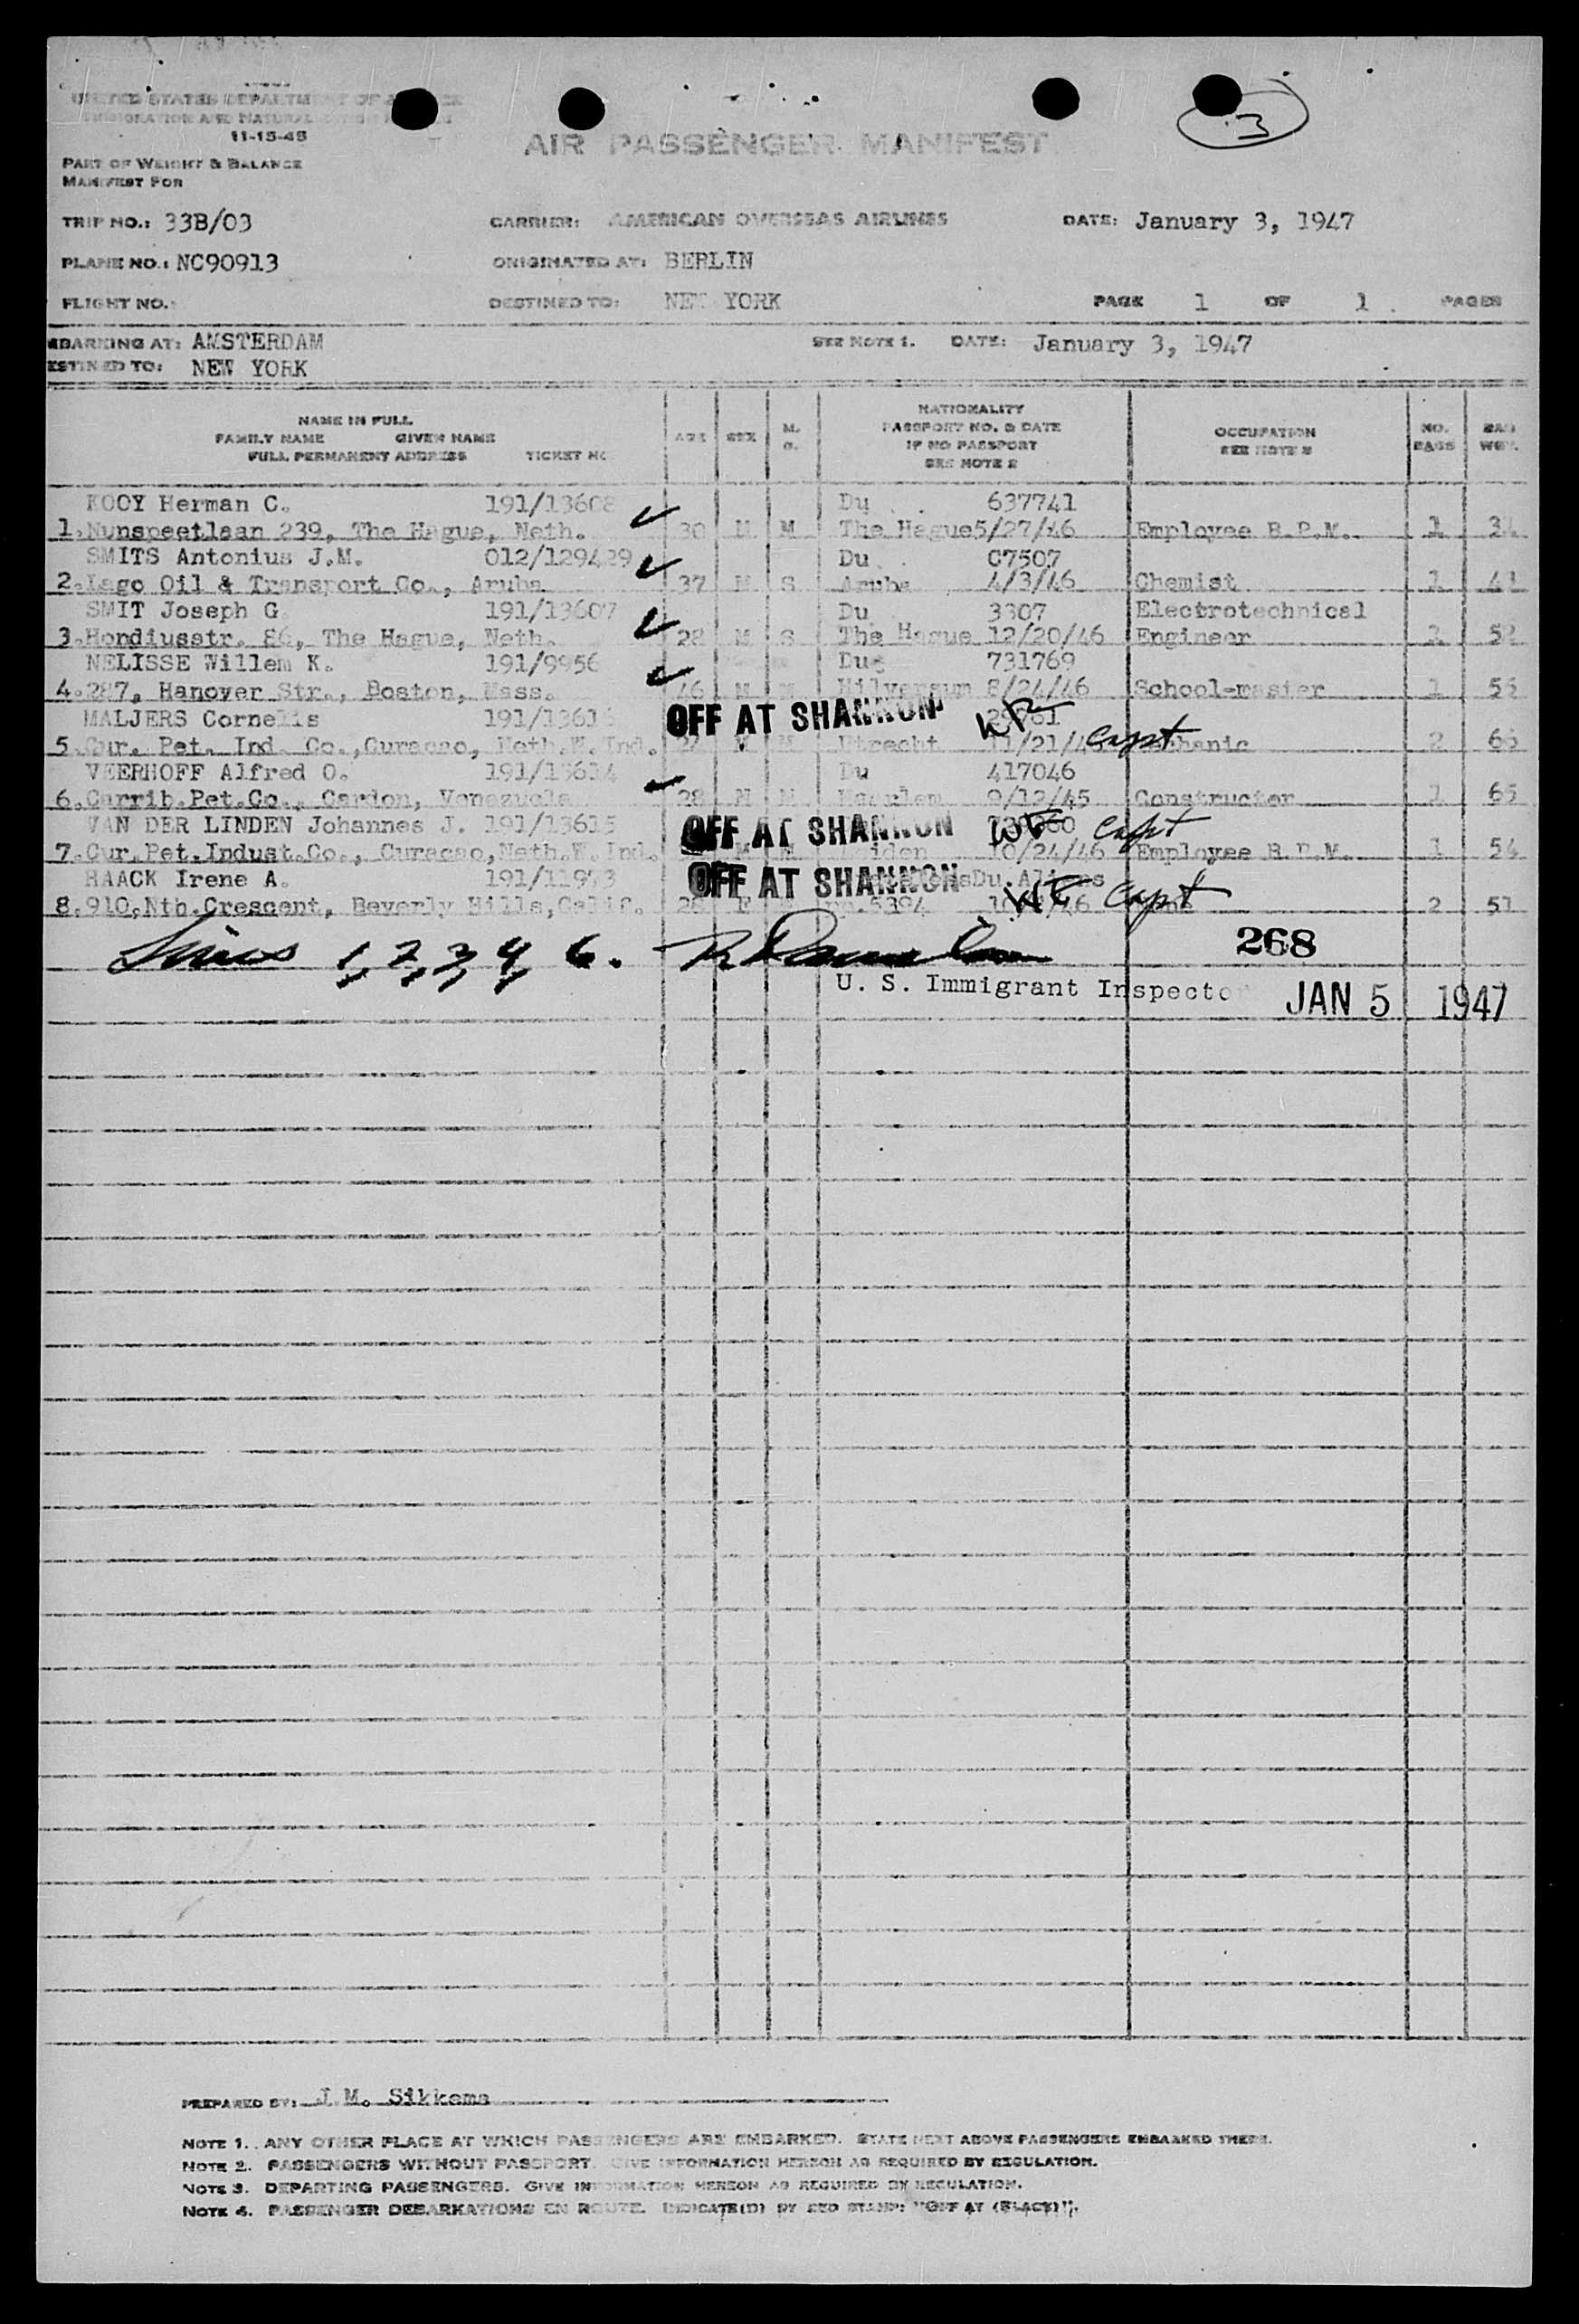 3
UNITED STATES DEPARTMENT OF
11-15-45
AIR PASSENGER MANIFEST
PART OF WEIGHT & BALANCE
MANIFEST FOR
TRIP NO.: 33B/03 CARRIER: AMERICAN OVERSEAS AIRLINES DATE: January 3, 1947
PLANE NO.: NC90913 ORIGINATED AT: BERLIN
FLIGHT NO.: DESTINED TO: NEW YORK PAGE 1 OF 1 PAGES
MBARKING AT: AMSTERDAM SEE NOTE 1. DATE: January 3, 1947
ESTINED TO: NEW YORK
NAME IN FULL NATIONALITY
FAMILY NAME GIVEN NAME AGE SEX M. PASSPORT NO. & DATE OCCUPATION NO. BAG
FULL PERMANENT ADDRESS TICKET NO S. IF NO PASSPORT SEE NOTE 3 BAGS WGT.
SEE NOTE 2
KOOY Herman C. 191/13608 Du 637741
1. Nunspeetlaan 239, The Hague, Neth. 30 M M The Hague 5/27/46 Employee B.P.M. 1
SMITS Antonius J.M. 012/129429 Du C7507
2. Lago Oil & Transport Co., Aruba 37 M S Aruba 4/3/46 Chemist 1
SMIT Joseph G 191/13607 Du 3307 Electrotechnical
3. Hondiusstr. 86, The Hague, Neth. 28 M S The Hague 12/20/46 Engineer 1
NELISSE Willem K. 191/9956 Du 731769
4. 287, Hanover Str., Boston, Mass. 46 M M Hilversum 8/24/46 School-master 1
MALJERS Cornelis OFF AT SHANNON WF
5. Cur. Pet. Ind. Co., Curacao, Neth.W.Ind. M M Utrecht capt 2 65
VEERHOFF Alfred O. 191/13614 Du 417046
6. Carrib.Pet.Co., Cardon, Venezuela 28 M M Haarlem 9/12/45 Constructor 1 65
VAN DER LINDEN Johannes J. 191/13615 OFF AT SHANNON WF capt
7. Cur.Pet.Indust.Co., Curacao, Neth.W.Ind. M M 10/24/46 Employee B.P.M. 1 54
HAACK Irene A. OFF AT SHANNON Du.
8. 910, Nth.Crescent, Beverly Hills, Calif. 28 F WF capt 2 51
Lines 1, 2, 3, 4, 6. 268
U. S. Immigrant Inspecto JAN 5 1947
PREPARED BY: J.M. Sikkema
NOTE 1. ANY OTHER PLACE AT WHICH PASSENGERS ARE EMBARKED. STATE NEXT ABOVE PASSENGERS EMBARKED THERE.
NOTE 2. PASSENGERS WITHOUT PASSPORT. GIVE INFORMATION HEREON AS REQUIRED BY REGULATION.
NOTE 3. DEPARTING PASSENGERS. GIVE INFORMATION HEREON AS REQUIRED BY REGULATION.
NOTE 4. PASSENGER DEBARKATIONS EN ROUTE. INDICATE(D) BY RED STAMP: "OFF AT (PLACE)".